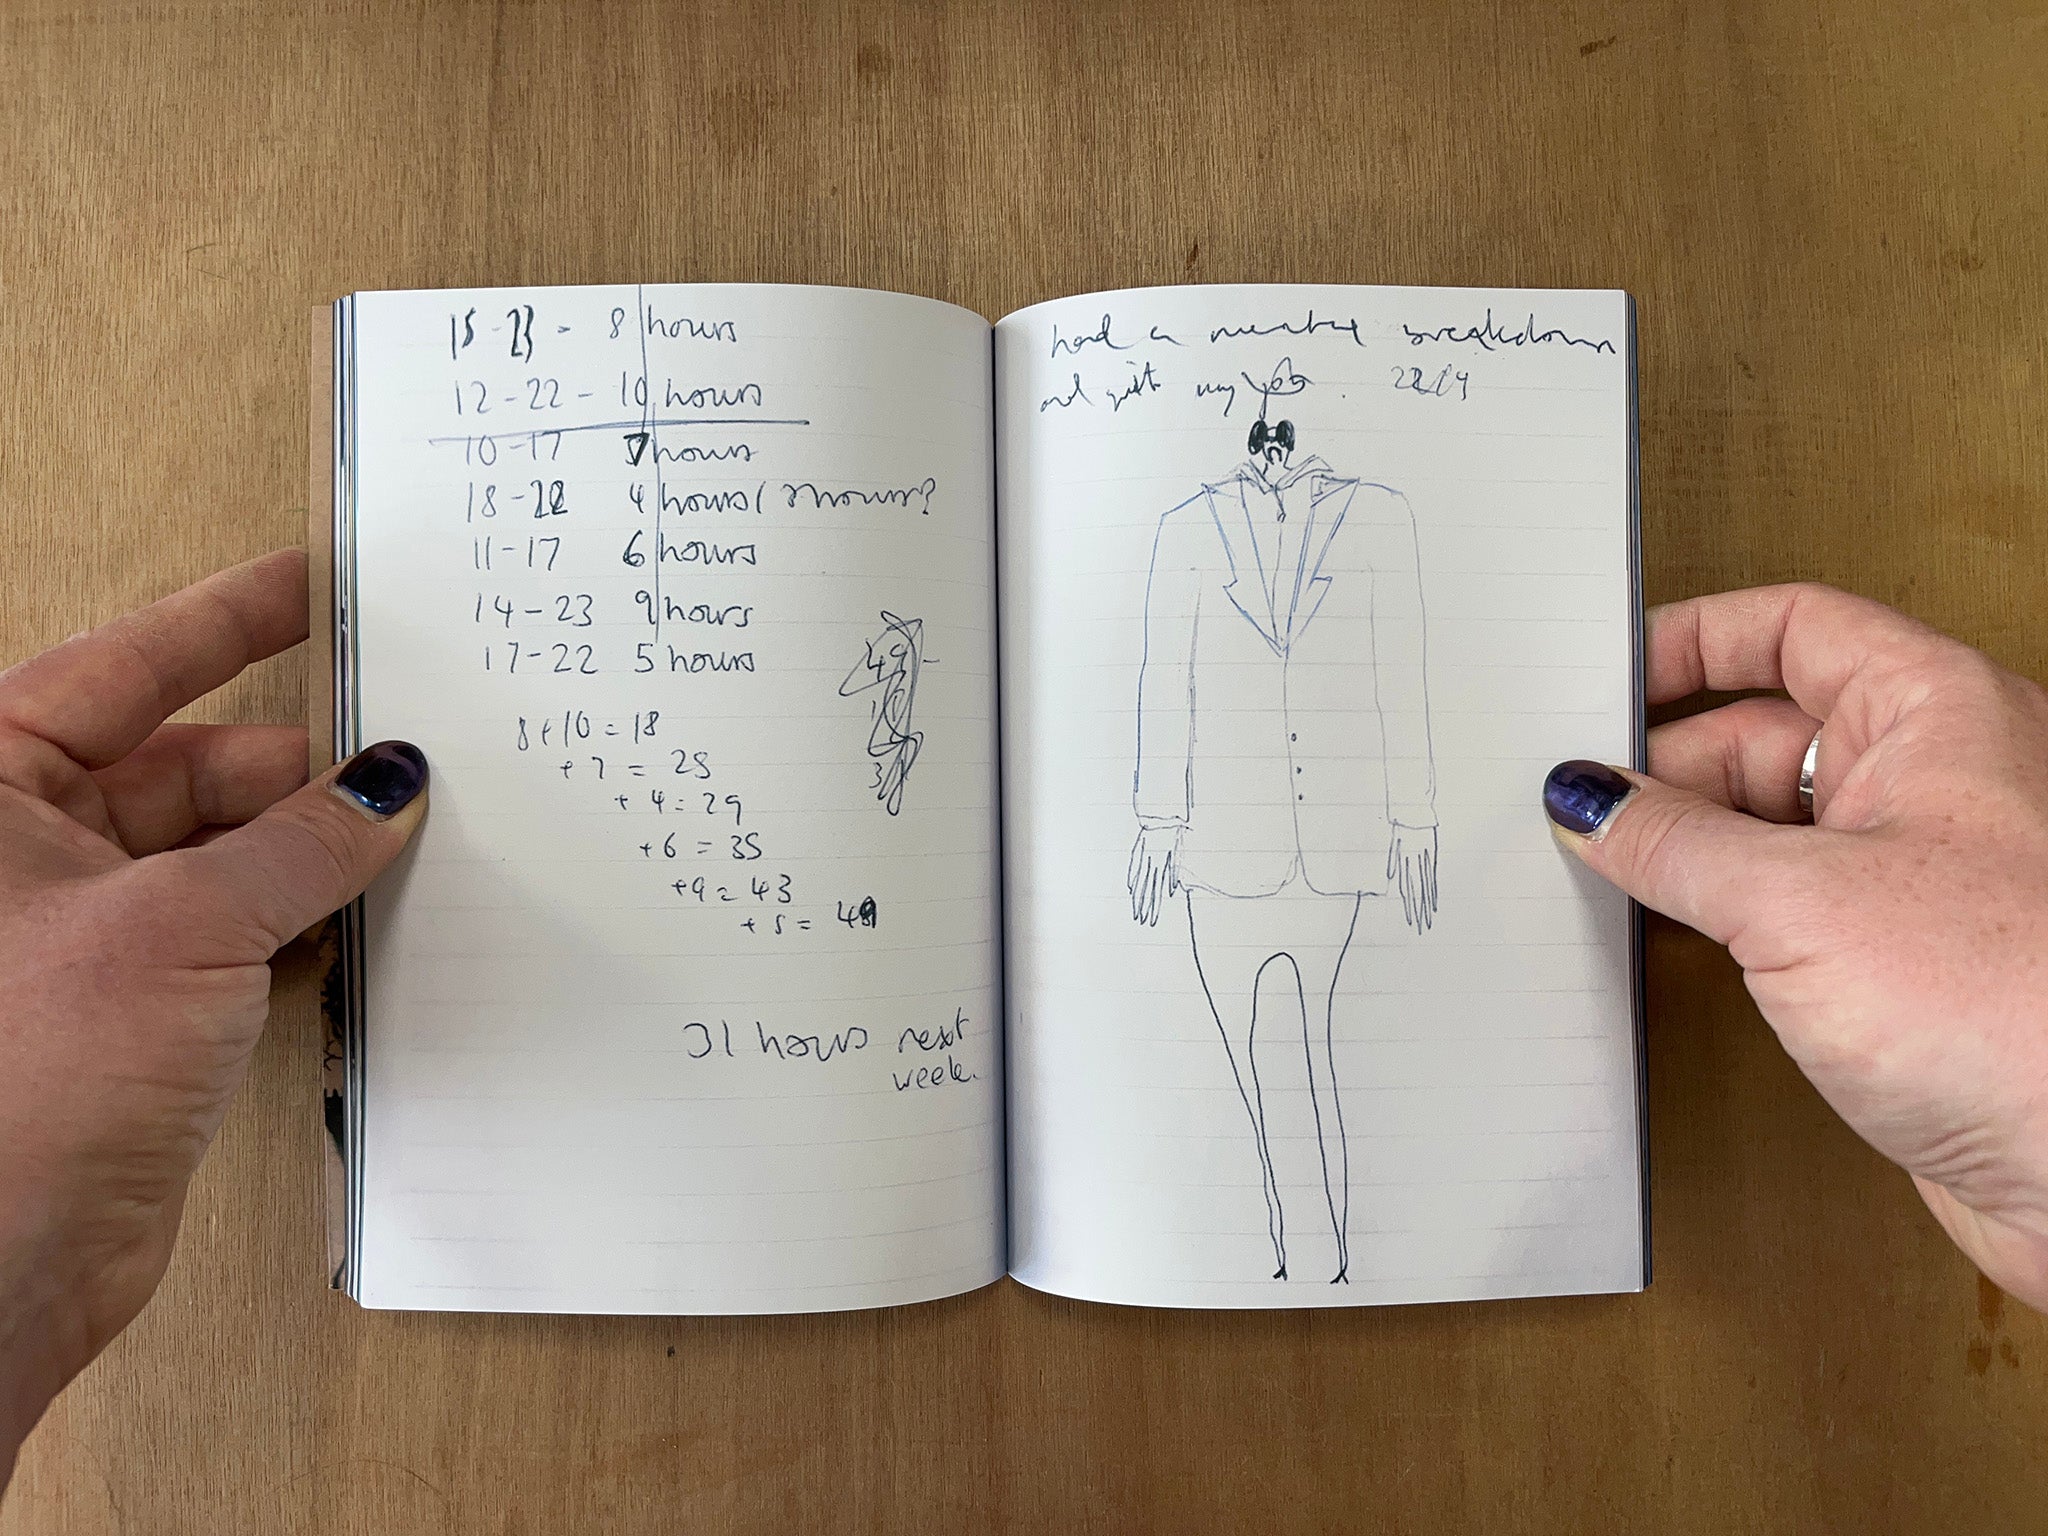 15-23 - 8 hours
12-22 - 10 hours
10-17 7 hours
18-22 4 hours ( hours?
11-17 6 hours
14-23 9 hours
17-22 5 hours
8+10=18
+7 = 25
+4=29
+6 = 35
+9=43
+5= 49
49-
31 hours next
week.
had a mental breakdown
and quit my job. 22/4